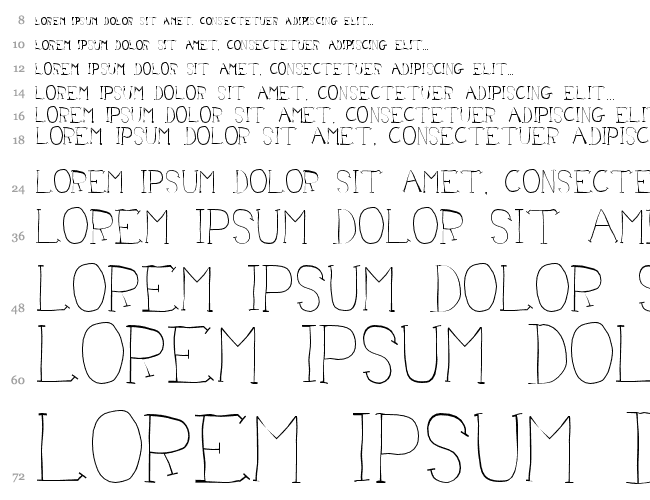 8 LOREM IPSUM DOLOR SIT AMET, CONSECTETUER ADIPISCING ELIT...
10 LOREM IPSUM DOLOR SIT AMET, CONSECTETUER ADIPISCING ELIT...
12 LOREM IPSUM DOLOR SIT AMET, CONSECTETUER ADIPISCING ELIT...
14 LOREM IPSUM DOLOR SIT AMET, CONSECTETUER ADIPISCING ELIT...
16 LOREM IPSUM DOLOR SIT AMET, CONSECTETUER ADIPISCING ELIT
18 LOREM IPSUM DOLOR SIT AMET, CONSECTETUER ADIPISC
24 LOREM IPSUM DOLOR SIT AMET, CONSECTE
36 LOREM IPSUM DOLOR SIT AM
48 LOREM IPSUM DOLOR S
60 LOREM IPSUM DOL
72 LOREM IPSUM D